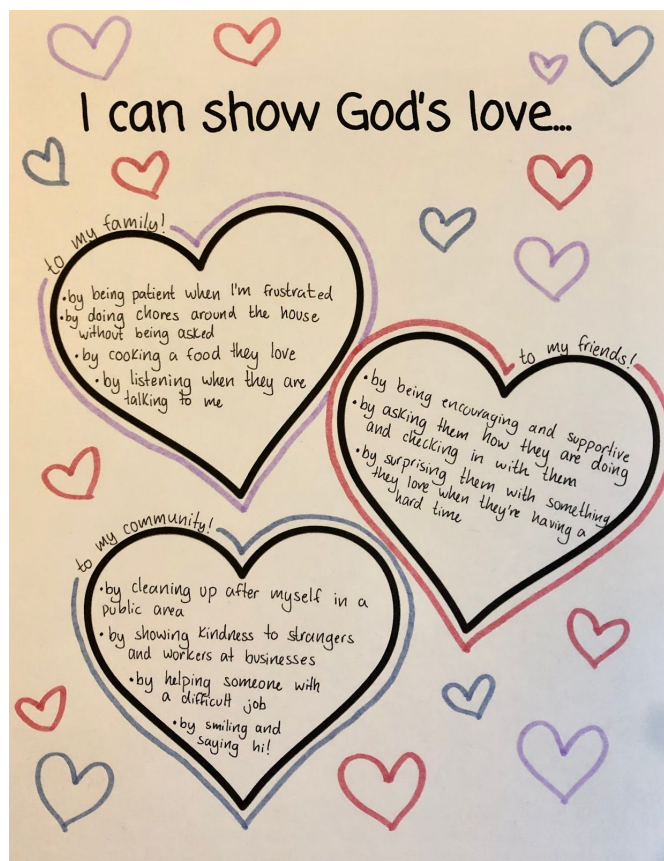 I can show God's love...
to my family!
•by being patient when I'm frustrated
•by doing chores around the house
without being asked
•by cooking a food they love
•by listening when they are
talking to me
to my friends!
•by being encouraging and supportive
•by asking them how they are doing
and checking in with them
•by surprising them with something
they love when they're having a
hard time
to my community!
•by cleaning up after myself in a
public area
•by showing kindness to strangers
and workers at businesses
•by helping someone with
a difficult job
•by smiling and
saying hi!